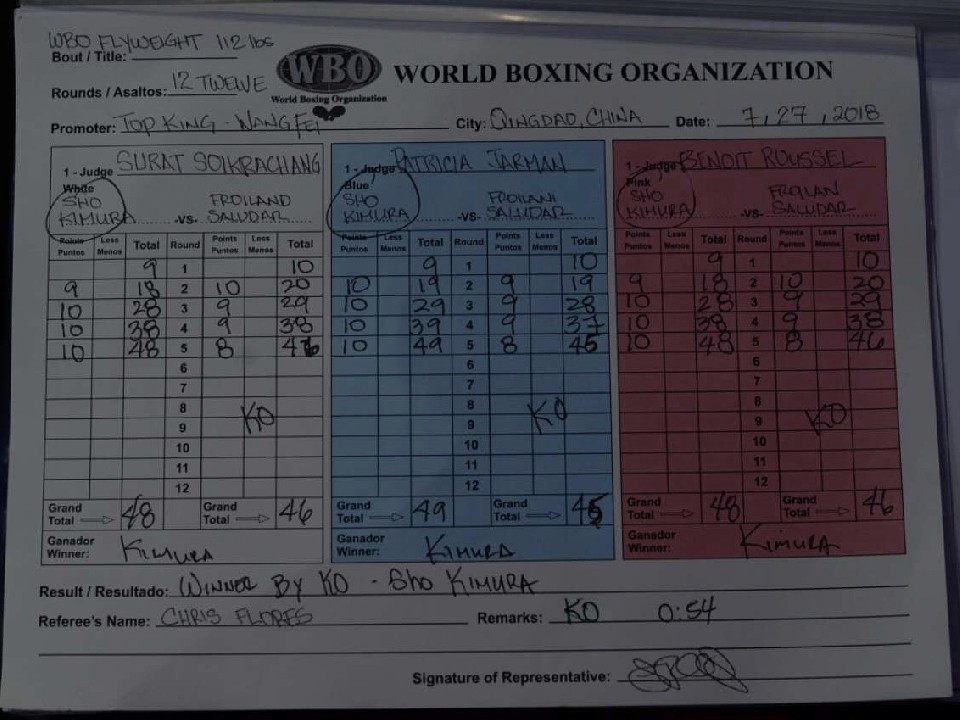 WBO FLYWEIGHT 112 lbs
Bout / Title:
Rounds / Asaltos: 12 TWELVE
WBO
World Boxing Organization
WORLD BOXING ORGANIZATION
Promoter: TOP KING - WANG FEI City: QINGDAO, CHINA Date: 7, 27, 2018
1 - Judge SURAT SOIKRACHANG
White
SHO KIMURA -vs- FROILAND SALUDAR
Points Puntos Less Menos Total Round Points Puntos Less Menos Total
9 1 10
9 18 2 10 20
10 28 3 9 29
10 38 4 9 38
10 48 5 8 46
6
7
8
9 KO
10
11
12
Grand Total 48 Grand Total 46
Ganador Winner: KIMURA
1 - Judge PATRICIA JARMAN
Blue
SHO KIMURA -vs- FROILANI SALUDAR
Points Puntos Less Menos Total Round Points Puntos Less Menos Total
9 1 10
10 19 2 9 19
10 29 3 9 28
10 39 4 9 37
10 49 5 8 45
6
7
8
9 KO
10
11
12
Grand Total 49 Grand Total 45
Ganador Winner: KIMURA
1 - Judge BENOIT ROUSSEL
Pink
SHO KIMURA -vs- FROILAN SALUDAR
Points Puntos Less Menos Total Round Points Puntos Less Menos Total
9 1 10
9 18 2 10 20
10 28 3 9 29
10 38 4 9 38
10 48 5 8 46
6
7
8
9 KO
10
11
12
Grand Total 48 Grand Total 46
Ganador Winner: KIMURA
Result / Resultado: WINNER BY KO - SHO KIMURA
Referee's Name: CHRIS FLORES Remarks: KO 0:54
Signature of Representative: